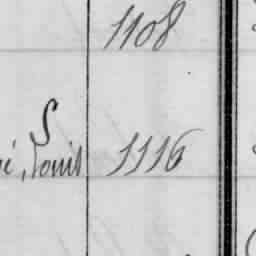 1108
S
é, Louis 1116